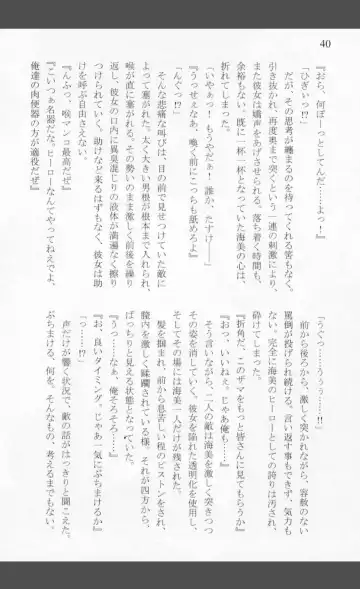 40
『おら、何ぼーっとしてんだ……よっ！』
「ひぎぃっ!?」
だが、その思考が纏まるのを待ってくれる筈もなく、
引き抜かれ、再度奥まで突くという一連の刺激により、
また彼女は嬌声をあげさせられる。落ち着く時間も、
余裕もない。既に一杯一杯となっていた海美の心は、
折れてしまった。
「いやぁっ！もうやだぁ！誰か、たすけ――」
『うっせぇなぁ、喚く前にこっちも舐めろよ』
「んぐっ!?」
そんな悲痛な叫びは、目の前で見せつけていた敵に
よって塞がれた。太く大きい男根が根本まで入れられ、
喉が直に塞がれる。その勢いのまま激しく前後を繰り
返し、彼女の口内に異臭混じりの液体が満遍なく擦り
つけられていく。助けなど来るはずもなく、彼女は助
けを呼ぶ自由さえない。
『んふっ、喉マンコ最高だぜ』
『こいつぁ名器だな。ヒーローなんてやってねえでよ、
俺達の肉便器の方が適役だぜ』
「うぐっ……うぅっ……!!」
前から後ろから、激しく突かれながら、容赦のない
罵倒が投げられ続ける。言い返す事もできず、気力も
ない。完全に海美のヒーローとしての誇りは汚され、
砕けてしまった。
『折角だ、このザマをもっと皆さんに見てもらうか』
『おっ、いいねぇ。じゃあ俺も……』
そう言いながら、二人の敵は海美を激しく突きつつ
その姿を消していく。彼女を陥れた透明化を使用し、
そしてその場には海美一人だけが残された。
髪を掴まれ、前から息苦しい程のピストンをされ、
膣内を激しく蹂躙されている様。それが四方から、
ばっちりと見える状態となっていた。
『うっ……なぁ、俺そろそろ……』
『お、良いタイミング。じゃあ一気にぶちまけるか』
「っ……!?」
声だけが響く状況で、敵の話がはっきりと聞こえた。
ぶちまける、何を。そんなもの、考えるまでもない。